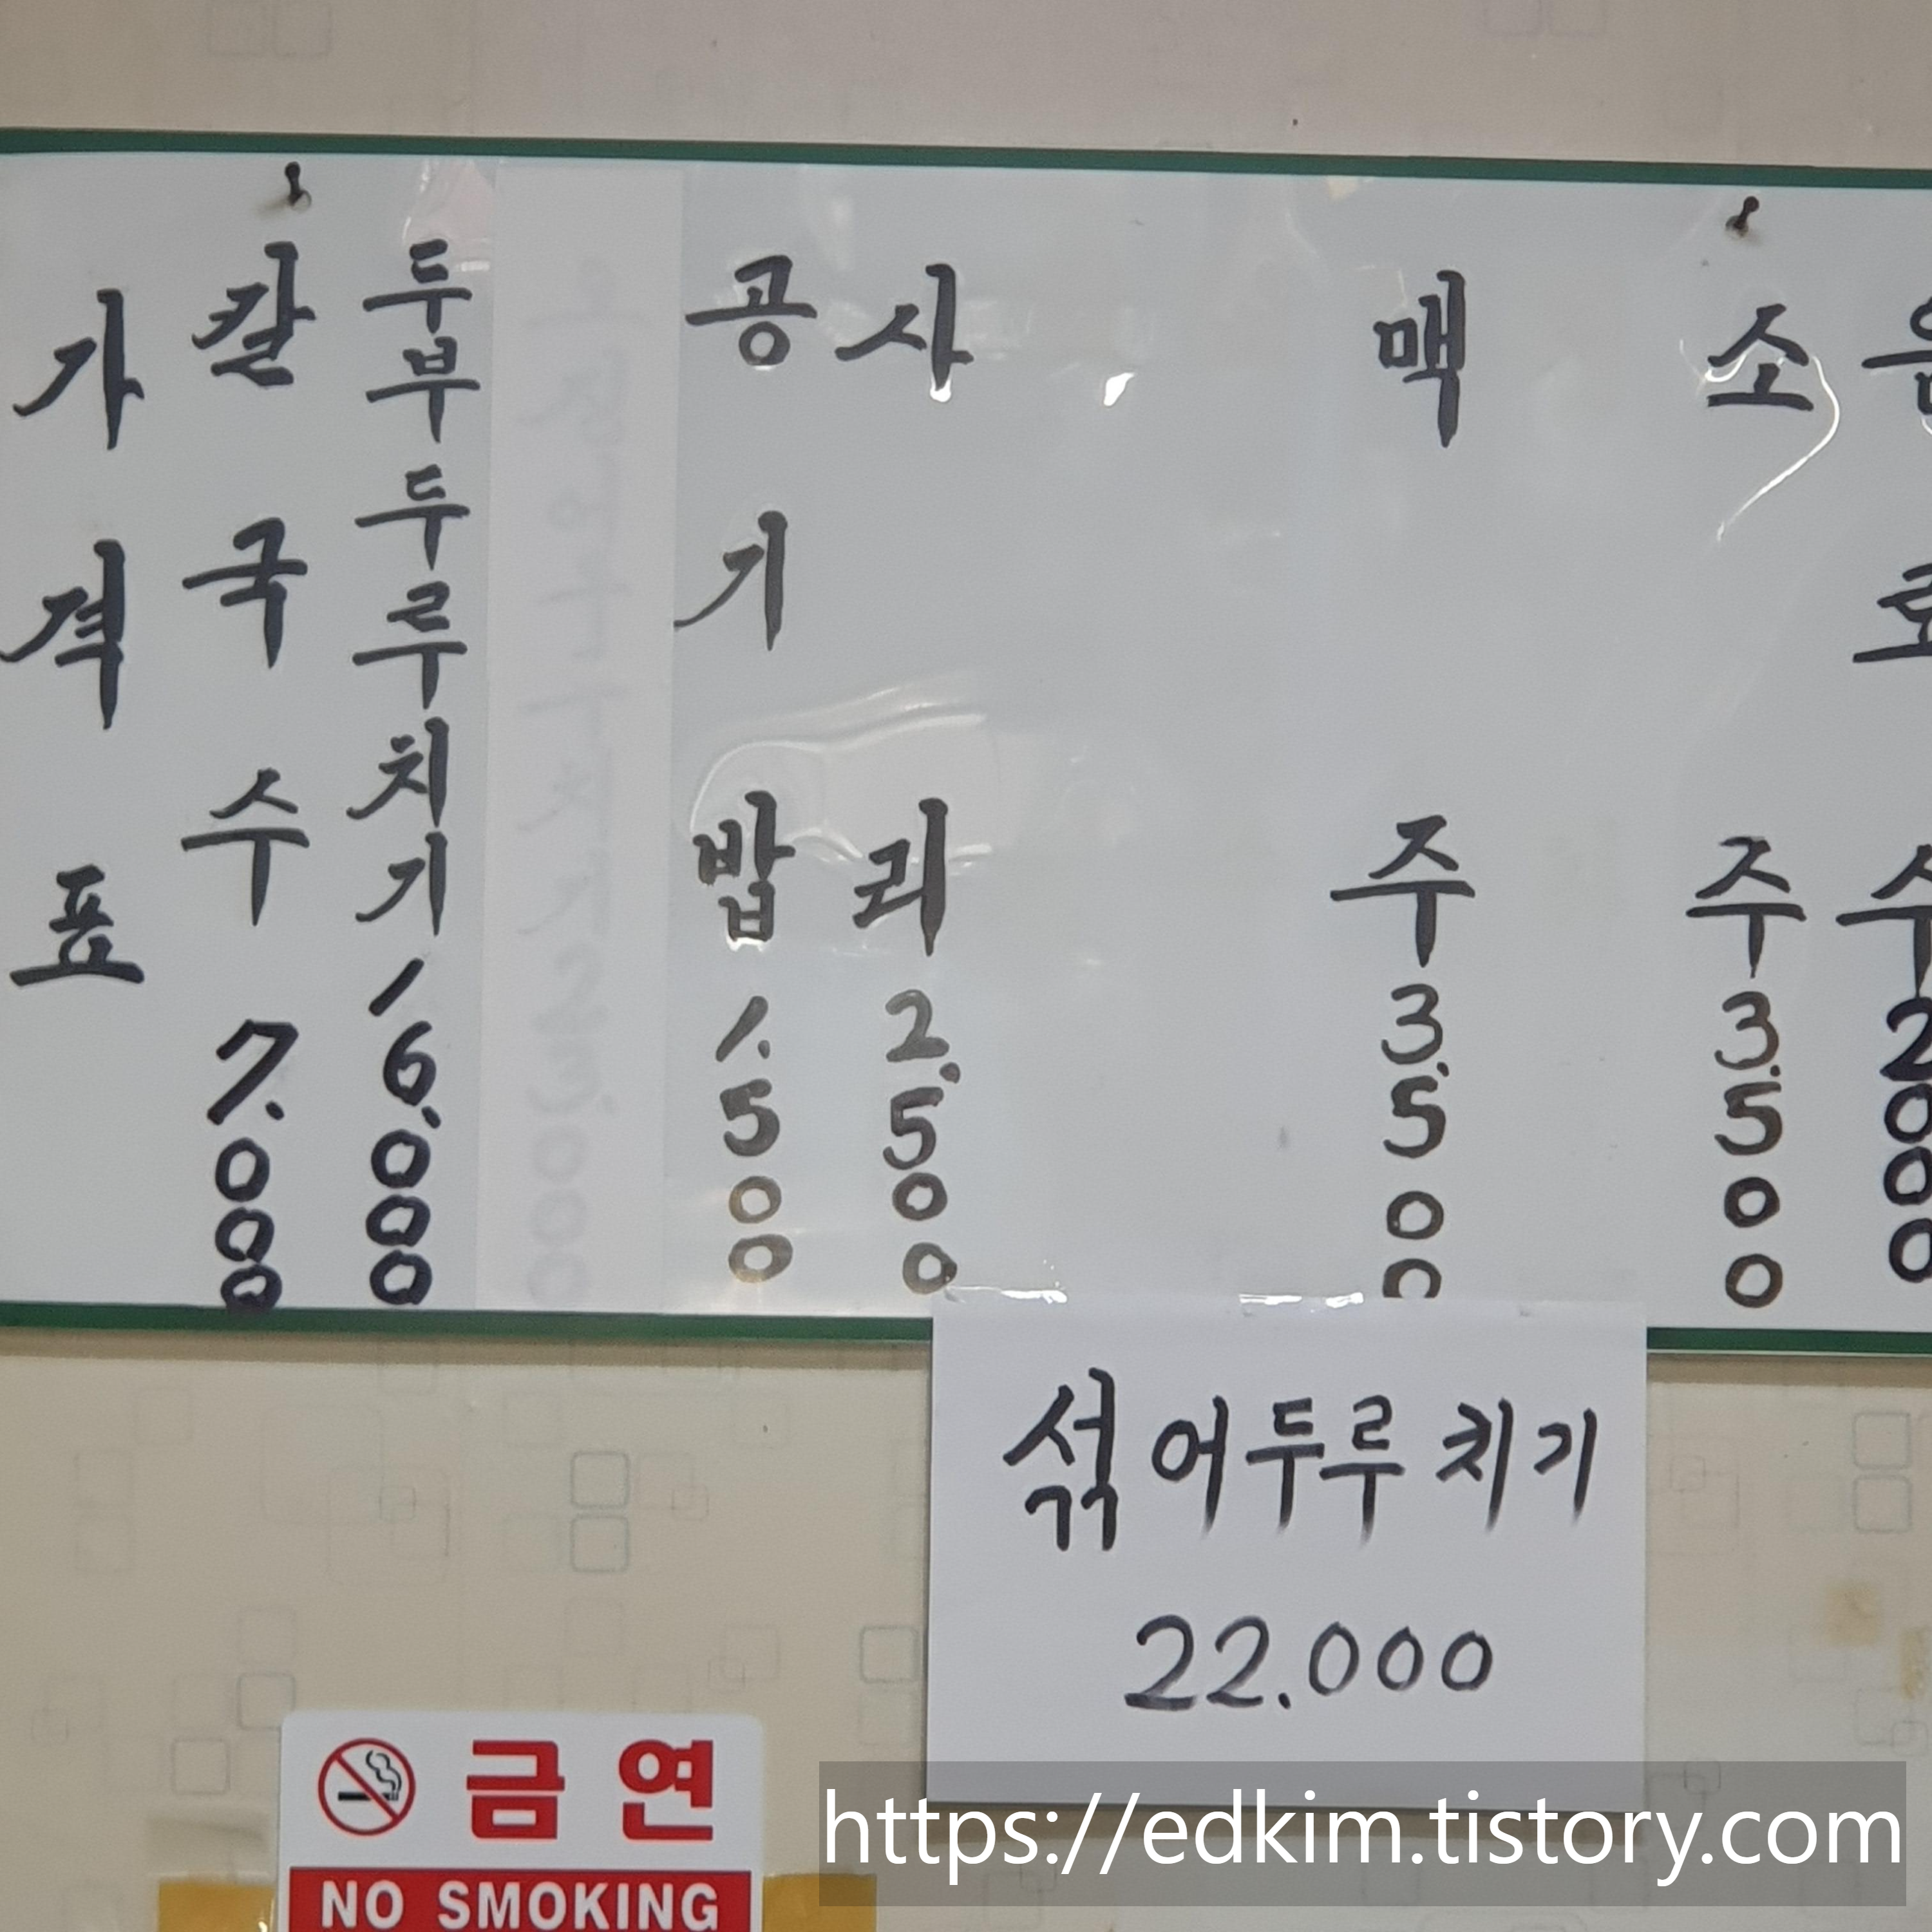 가격표
칼국수 7.000
두부두루치기 16.000
공기밥 1.500
사리 2.500
맥주 3.500
소주 3.500
음료수 2000
섞어두루치기
22.000
금연
NO SMOKING
https://edkim.tistory.com